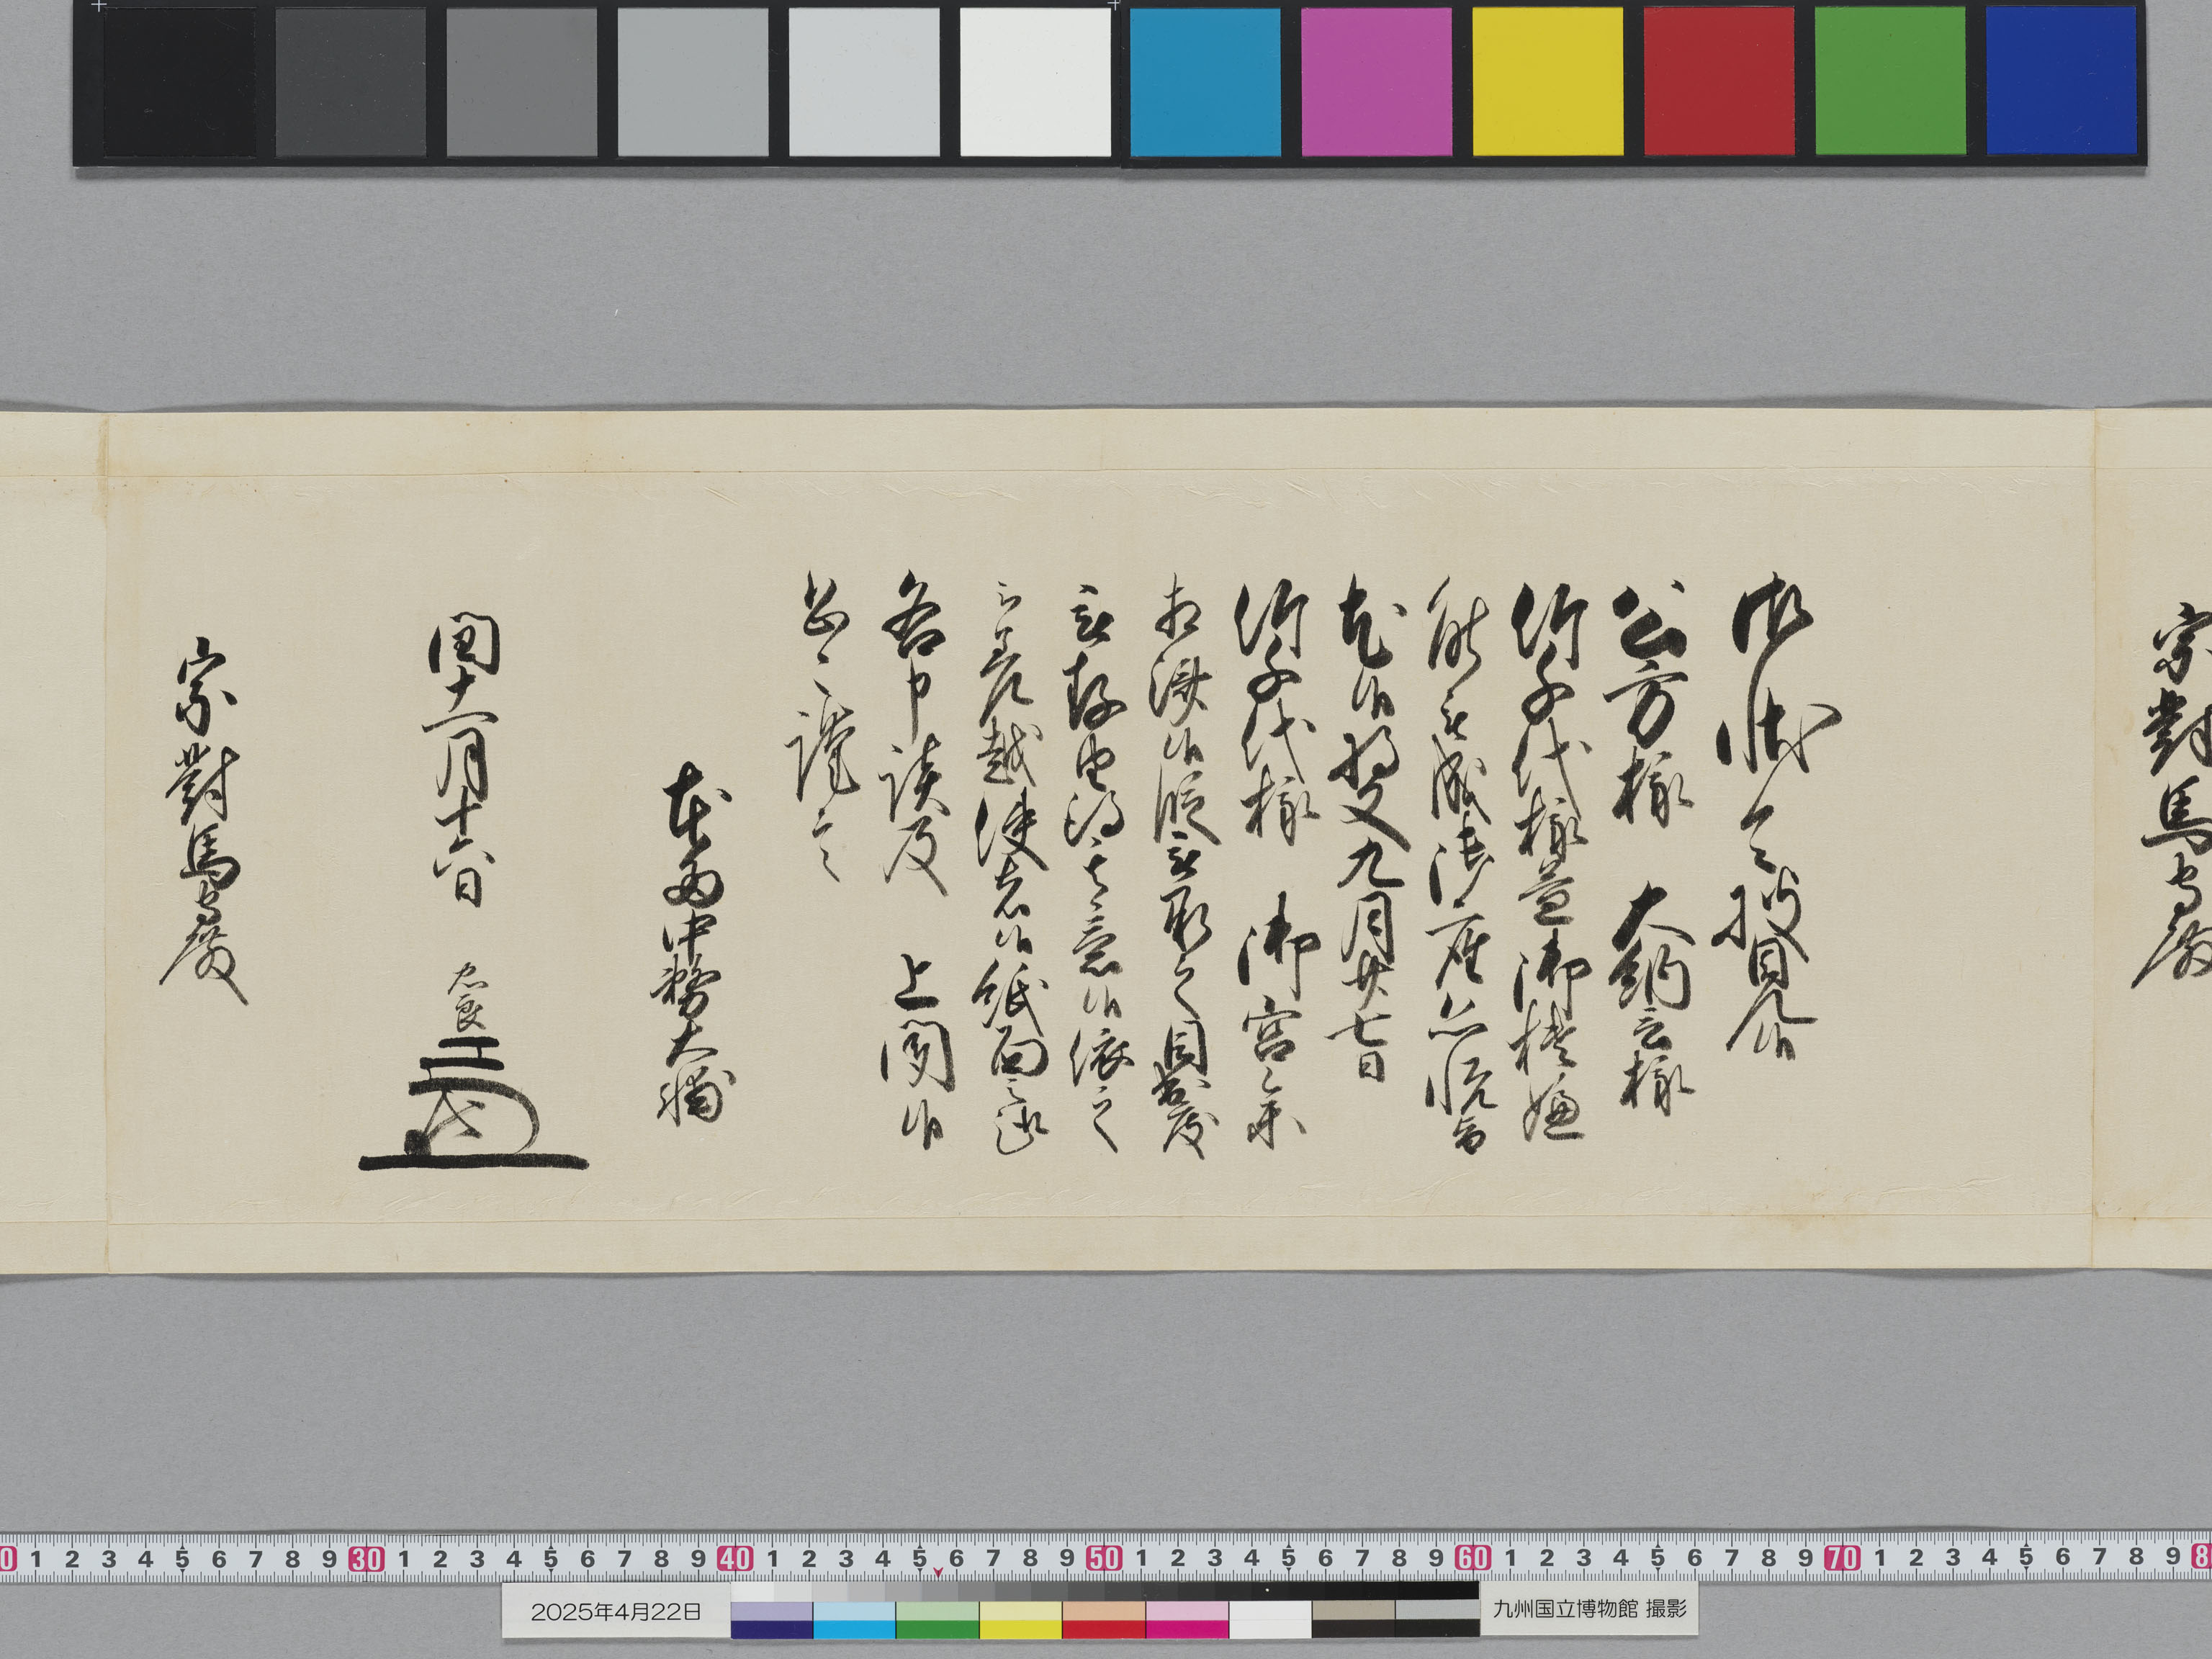 宗對馬守殿
御状令披見候
公方様 大納言様
竹千代様益御機嫌
能被成御座恐悦旨
尤候将又九月廿七日
竹千代様 御宮参
相濟候段被承之目出度
被存由得其意候依之
被差越使者候紙面之通
各申談及 上聞候
恐々謹言
本多中務大輔
閏十一月十六日 忠良
宗對馬守殿
0 1 2 3 4 5 6 7 8 9 30 1 2 3 4 5 6 7 8 9 40 1 2 3 4 5 6 7 8 9 50 1 2 3 4 5 6 7 8 9 60 1 2 3 4 5 6 7 8 9 70 1 2 3 4 5 6 7 8 9 8
2025年4月22日
九州国立博物館 撮影